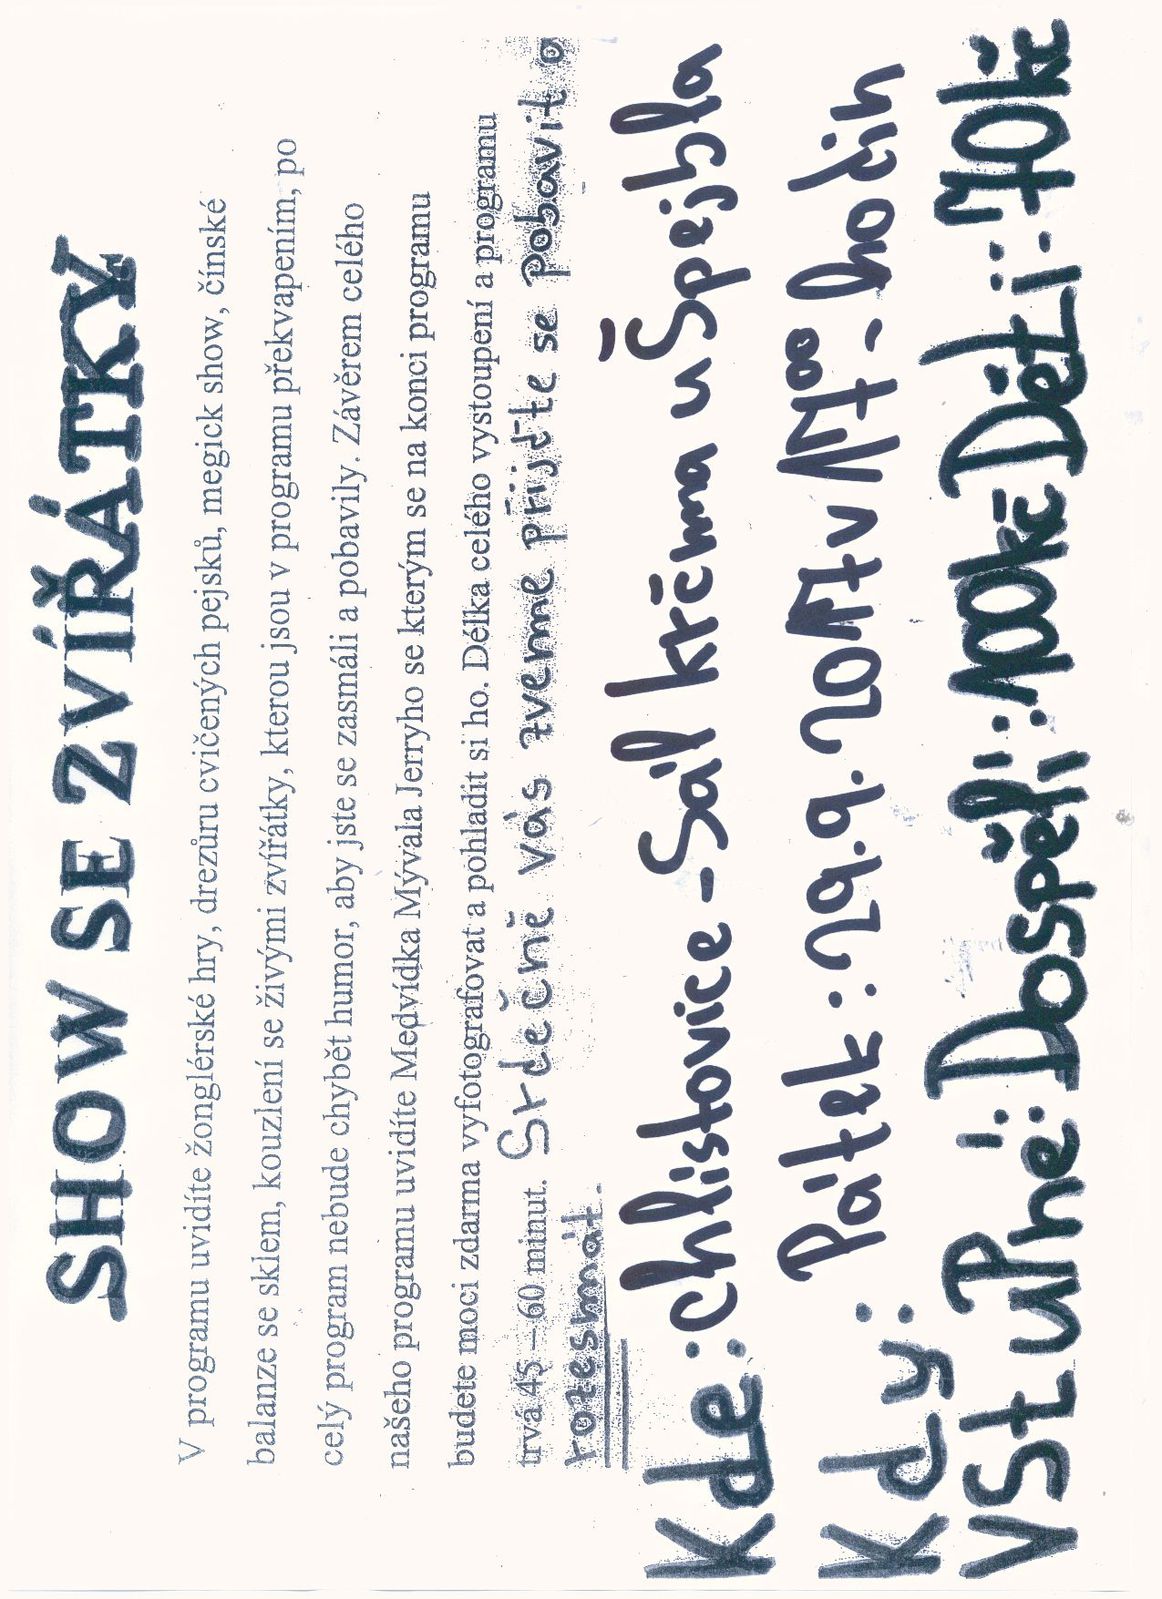 SHOW SE ZVÍŘÁTKY
V programu uvidíte žonglérské hry, drezůru cvičených pejsků, megick show, čínské
balanze se sklem, kouzlení se živými zvířátky, kterou jsou v programu překvapením, po
celý program nebude chybět humor, aby jste se zasmáli a pobavily. Závěrem celého
našeho programu uvidíte Medvídka Mývala Jerryho se kterým se na konci programu
budete moci zdarma vyfotografovat a pohladit si ho. Délka celého vystoupení a programu
trvá 45 – 60 minut. Srdečně vás zveme přijďte se pobavit a
rozesmát.
Kde: Chlistovice - Sál krčma u Špejbla
Kdy: Pátek: 29.9. 2017 v 17 00 - hodin
VStuPné: Dospělí: 100kč Děti: 70kč